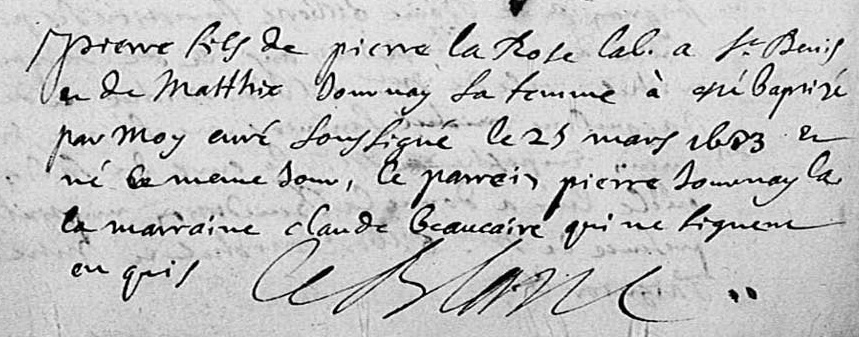 pierre fils de pierre la Rose lab. a St Benis
et de Matthie Journay sa femme à esté baptizé
par moy curé soussigné le 25 mars 1683 et
né le meme Jour, le parrein pierre Journay la
la marraine claude beaucaire qui ne signent
enquis Le Blanc